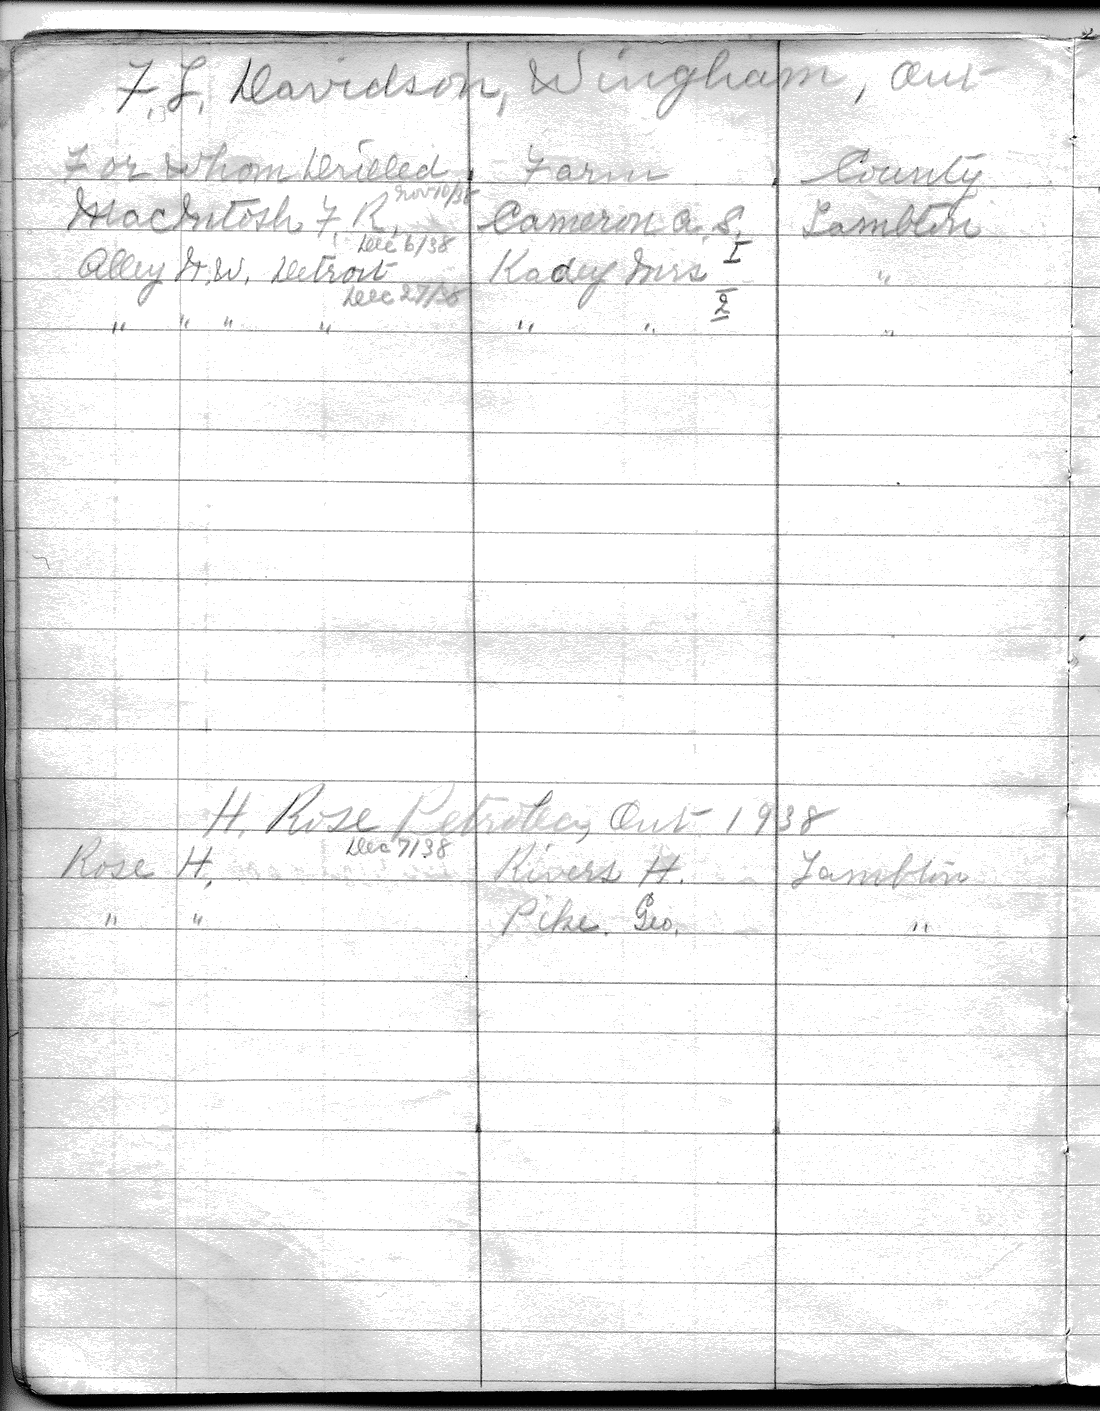 F. L. Davidson, Wingham, Ont
For Whom Drilled Farm County
Nov 10/38
MacIntosh F. R. Cameron A. S. Lambton
Dec 6/38
Alley H. W. Detroit Kadey Mrs I "
Dec 27/38 2
" " " " " " "
H. Rose Petrolea, Ont 1938
Dec 7/38
Rose H. Rivers H. Lambton
" " Pike. Geo. "